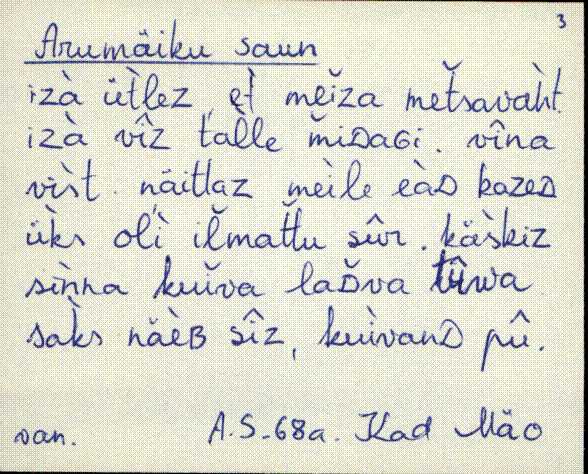 3
Arumäiku saun
izà ütlez, èt mĕĭza mĕt̆savàht.
izà vîz tàlle m̆iᴅaɢi. vîna
vìst. näitlaz mèile eàᴅ kazeᴅ
üks olì ilmat̆tu sûr. käs̀kiz
sìnna kuĭva lad̆va tûwa
sàks näèʙ sîz, kuìvanᴅ pû.
van. A.S. - 68a. Kad Mäo